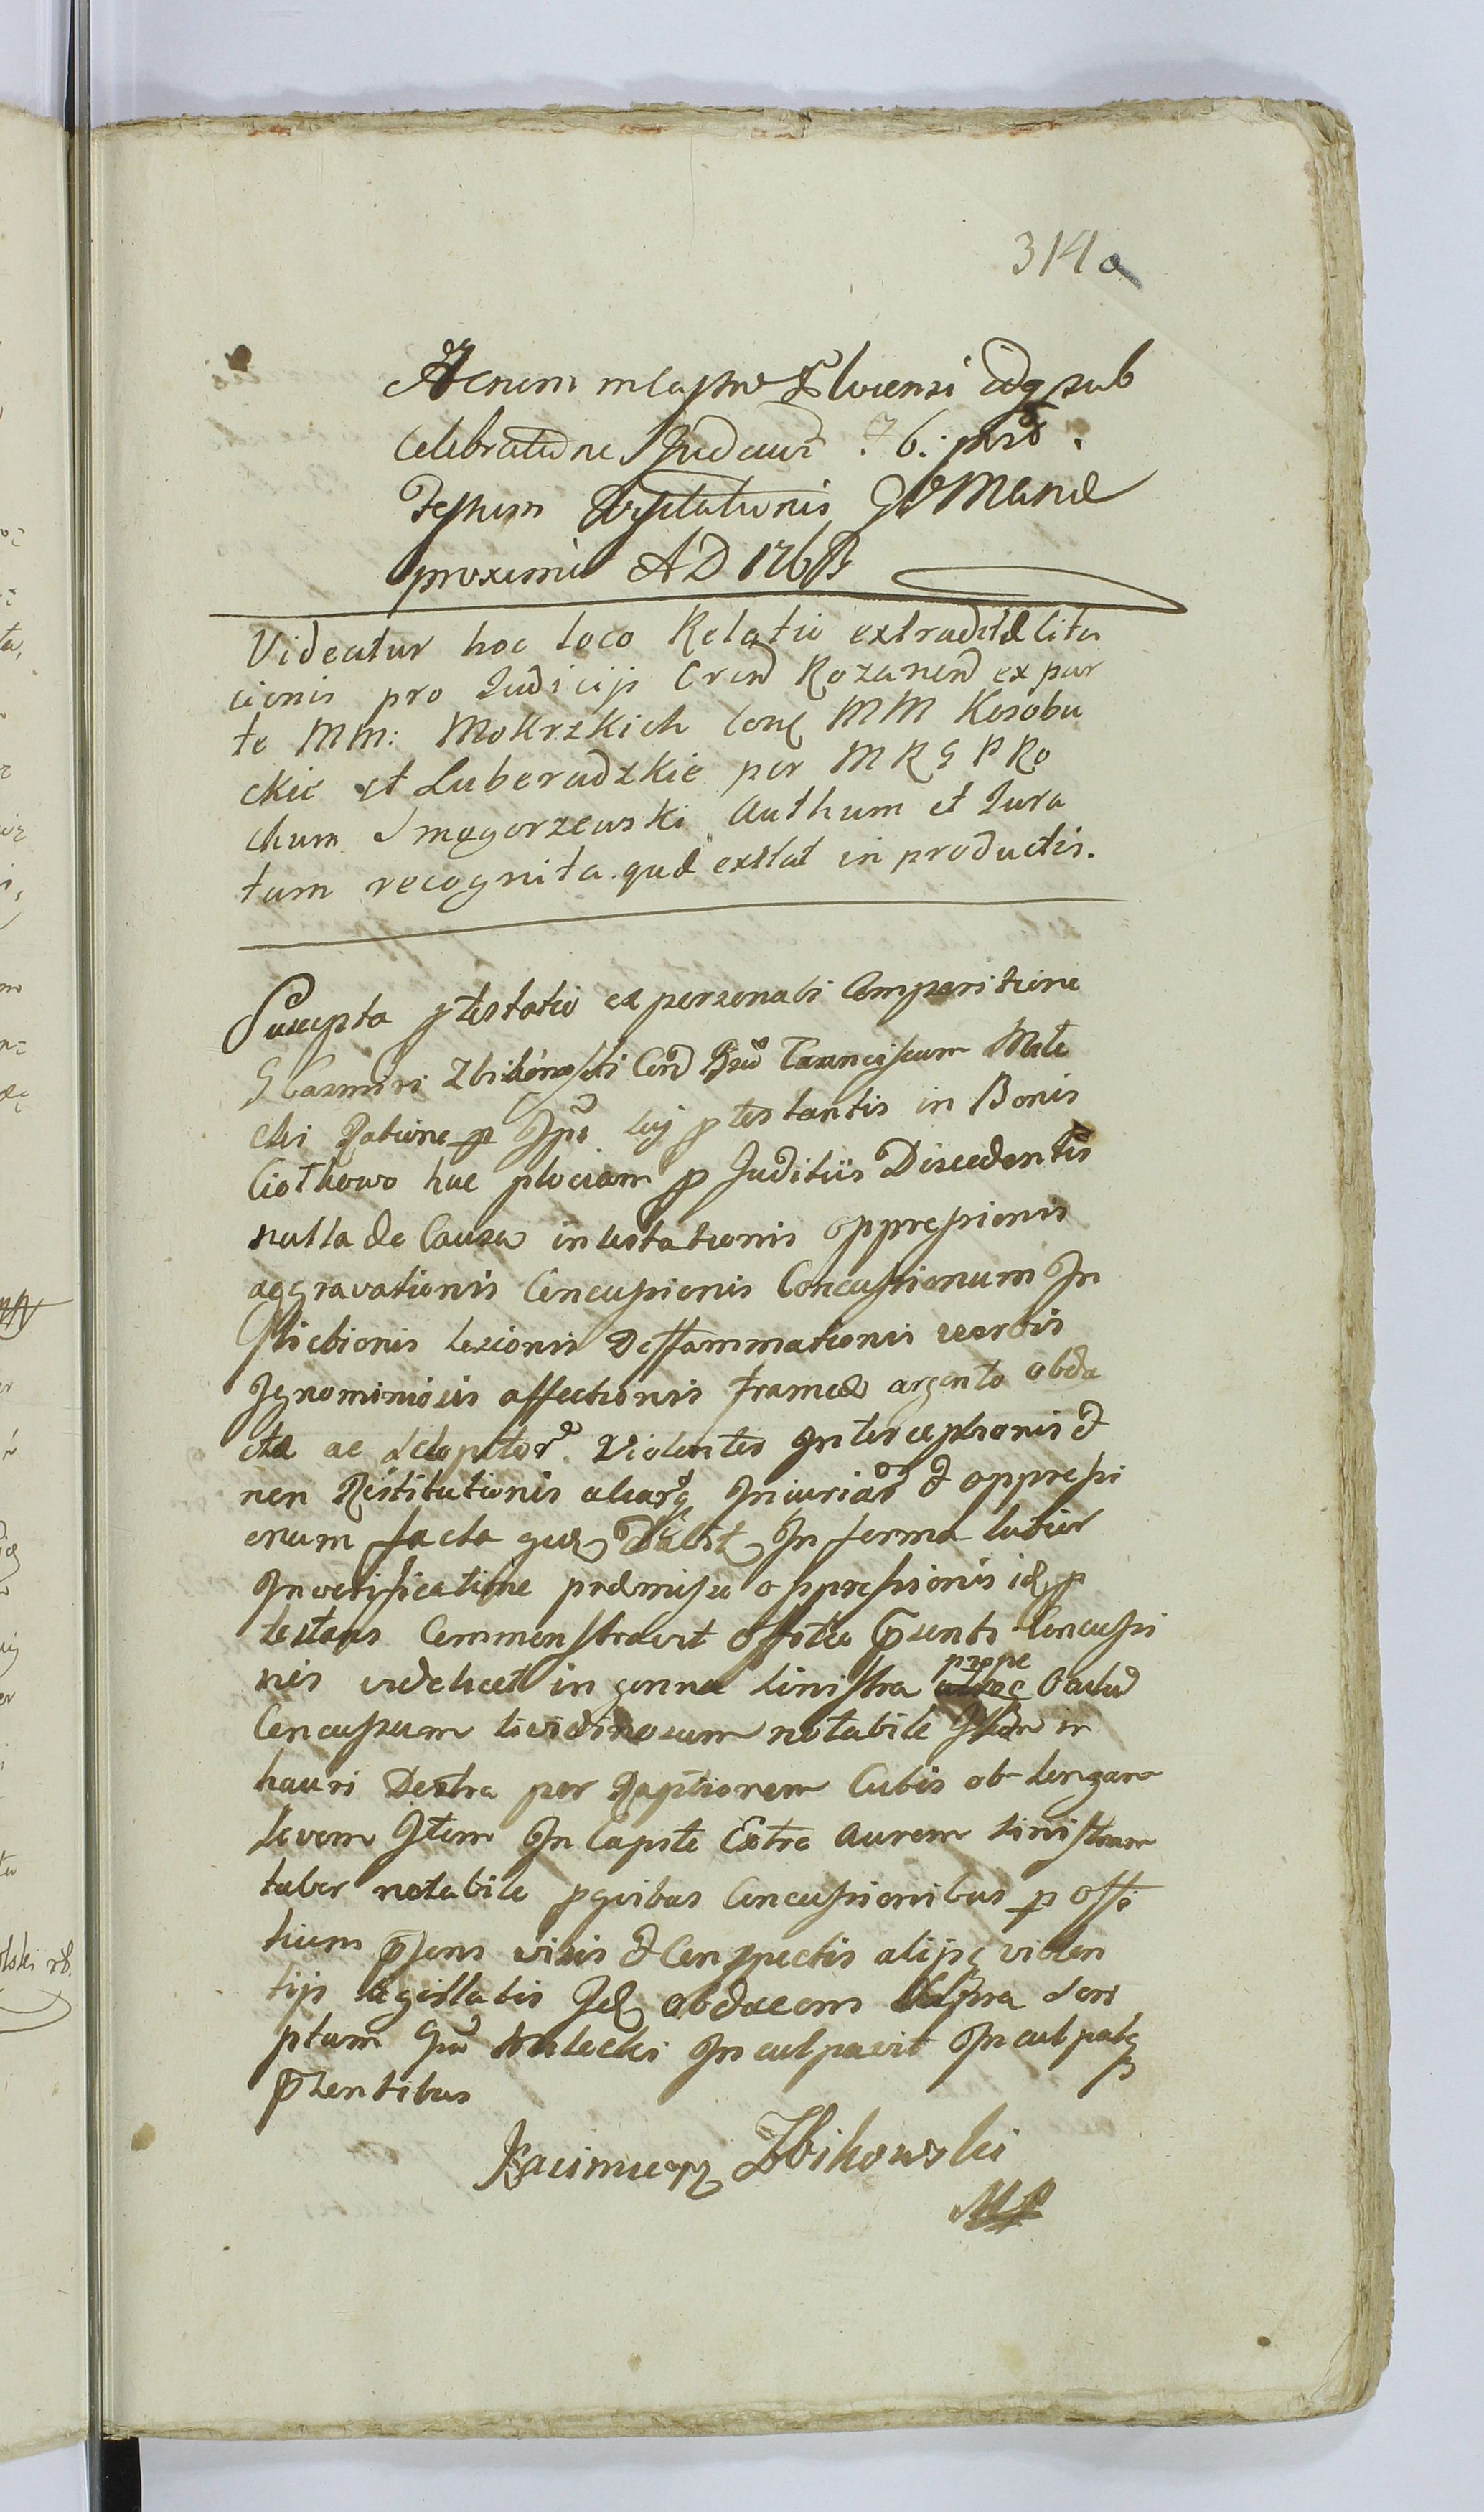 314a
Actum in Castro Plocensi idq sub
Celebratione Judicior 7b: post
Festum Visitationis B V Mariæ
proximis A D 176
Videatur hoc loco Relatio extraditæ Cita
cionis pro Iudicijs Cren Rozanen ex par
te MM: Mokrzkich Conq MM Kosobu
ckie et Luberadzkie per M R G P Ro
chum Smogorzewski Authum et Iura
tum recognita quæ extat in productis.
Suscepta ptestatio ex personali Comparitione
G Casmiri Zbikowski Con Gsu Franciscum Male
cki Ratione p Ipsu sui ptestantis in Bonis
Ciołkowo huc plociam p Juditiis Discedentis
nulla de Causa infestationis oppressionis
aggravationis Concussionis Concussionum In
flictionis Lesionis Deffammationis verbis
Ignominiosis affectionis frameæ argento obdu
ctæ ac sclopetor Violentes Interceptionis et
non Restitutionis aliarq Iniuriar et oppressi
onum facta quæ Dabit In forma latior
In verificatione præmissæ oppressionis idq p
testans Commonstravit officio Psenti Concussi
nis videlicet in genna sinistra prope Oculu
Concussum lividinosum notabile Item in
hauri Dextra per Raptionem Cutis oblongam
Levem Item In Capite Extra Aurem sinistram
tuber notabile p quibus Concussionibus p offi
tium Psens visis et Conspectis alijsq violen
tijs Registratis Idq obducens supra scri
ptum Gsu Malecki Inculpavit Inculpatq
Psentibus
Kazimierz Zbikowski
MP